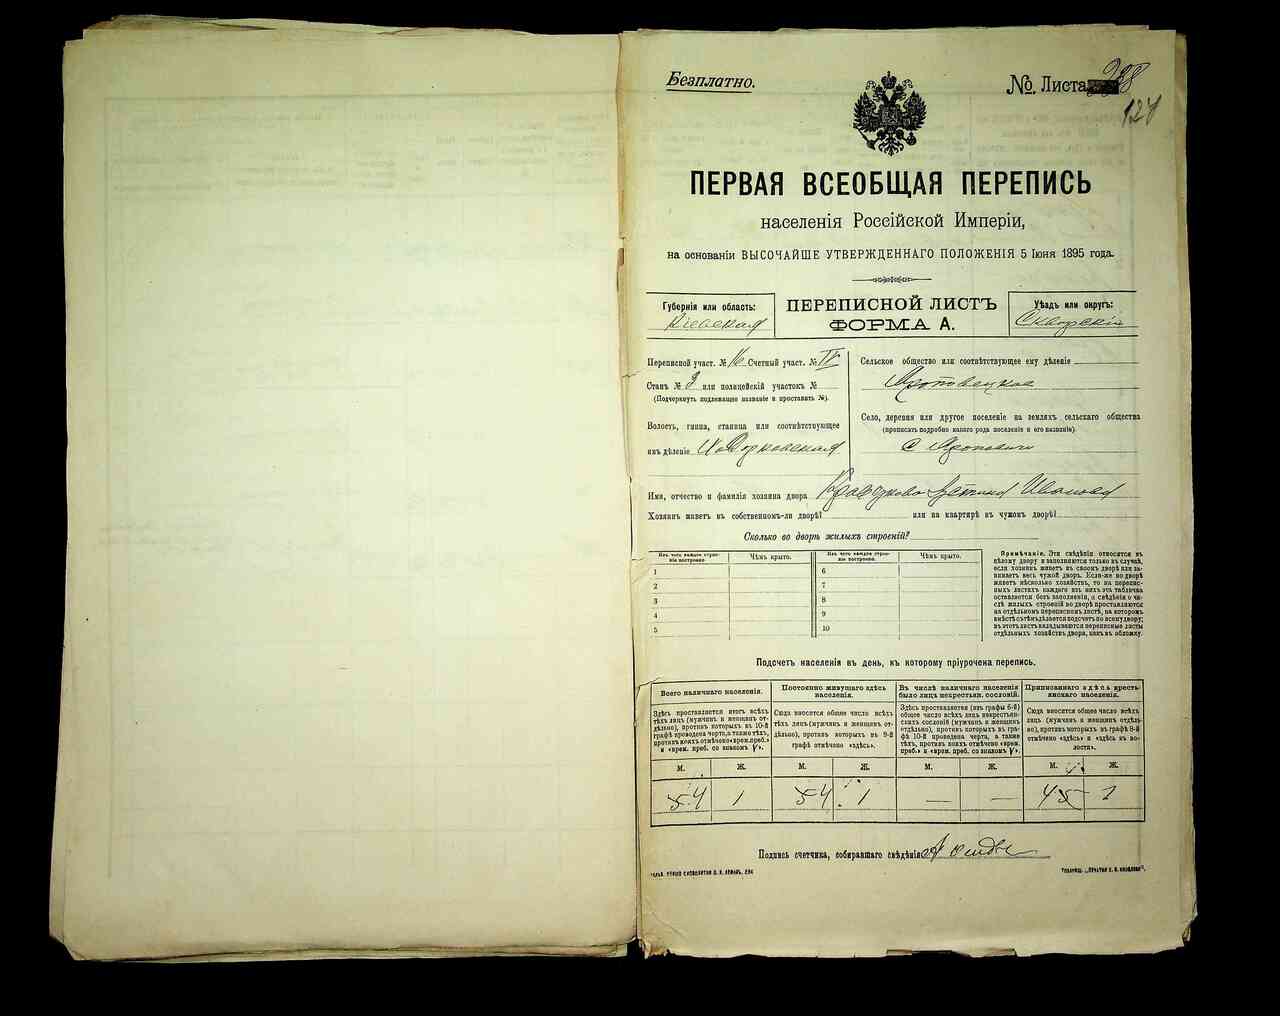 Безплатно.
№. Листа 238
127
ПЕРВАЯ ВСЕОБЩАЯ ПЕРЕПИСЬ
населенія Россійской Имперіи,
на основаніи ВЫСОЧАЙШЕ УТВЕРЖДЕННАГО ПОЛОЖЕНІЯ 5 Іюня 1895 года.
Губернія или область:
Кіевская
ПЕРЕПИСНОЙ ЛИСТЪ
ФОРМА А.
Уѣздъ или округъ:
Сквирскій
Переписной участ. № 16 Счетный участ. № IV
Станъ № 2 или полицейскій участокъ №
(Подчеркнуть подлежащее названіе и проставить №).
Волость, гмина, станица или соотвѣтствующее
имъ дѣленіе Ходорковская
Сельское общество или соотвѣтствующее ему дѣленіе
Яроповецкое
Село, деревня или другое поселеніе на земляхъ сельскаго общества
(прописать подробно какого рода поселеніе и его названіе).
С Яроповичи
Имя, отчество и фамилія хозяина двора Иванова
Хозяинъ живетъ въ собственномъ-ли дворѣ? или на квартирѣ въ чужомъ дворѣ?
Сколько во дворѣ жилыхъ строеній?
Изъ чего каждое строеніе построено
Чѣмъ крыто.
Изъ чего каждое строеніе построено.
Чѣмъ крыто.
1 6
2 7
3 8
4 9
5 10
Примѣчаніе. Эти свѣдѣнія относятся къ
цѣлому двору и заполняются только въ случаѣ,
если хозяинъ живетъ въ своемъ дворѣ или занимаетъ
весь чужой дворъ. Если-же во дворѣ
живетъ нѣсколько хозяйствъ, то на переписныхъ
листахъ каждаго изъ нихъ эта табличка
оставляется безъ заполненія, а свѣдѣнія о числѣ
жилыхъ строеній во дворѣ проставляются
на отдѣльномъ переписномъ листѣ, на которомъ
вмѣстѣ съ тѣмъ дѣлается подсчетъ по всему двору;
въ этотъ листъ вкладываются переписные листы
отдѣльныхъ хозяйствъ двора, какъ въ обложку.
Подсчетъ населенія въ день, къ которому пріурочена перепись.
Всего наличнаго населенія.
Постоянно живущаго здѣсь населенія.
Въ числѣ наличнаго населенія было лицъ некрестьян. сословій.
Приписаннаго здѣсь крестьянскаго населенія.
Здѣсь проставляется итогъ всѣхъ
тѣхъ лицъ (мужчинъ и женщинъ отдѣльно),
противъ которыхъ въ 10-й
графѣ проведена черта, а также тѣхъ,
противъ коихъ отмѣчено «врем. преб.»
и «врем. преб. со знакомъ V».
Сюда вносится общее число всѣхъ
тѣхъ лицъ (мужчинъ и женщинъ отдѣльно),
противъ которыхъ въ 9-й
графѣ отмѣчено «здѣсь».
Здѣсь проставляется (изъ графы 6-й)
общее число всѣхъ некрестьянскихъ
сословій (мужчинъ и женщинъ
отдѣльно), противъ которыхъ въ графѣ
10-й проведена черта, а также
тѣхъ, противъ коихъ отмѣчено «врем.
преб.» и «врем. преб. со знакомъ V».
Сюда вносится общее число всѣхъ
лицъ (мужчинъ и женщинъ отдѣльно),
противъ которыхъ въ графѣ 8-й
отмѣчено «здѣсь» и «здѣсь въ волости».
М. Ж. М. Ж. М. Ж. М. Ж.
54 1 54 1 — — 45 1
Подпись счетчика, собиравшаго свѣдѣнія